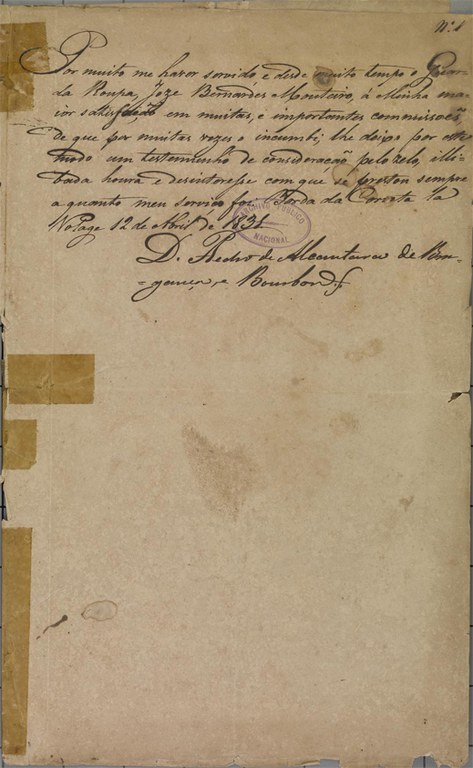 Nº 1
Por muito me haver servido, e desde muito tempo o Guar
da Roupa, Joze Bernardes Monteiro, á Minha ma
ior satisfação em muitas, e importantes commissões
de que por muitas vezes o incumbi; lhe deixo por este
modo um testemunho de consideração pelo zelo, illi
bada honra e desinteresse com que se prestou sempre
a quanto meu serviço foi. Bordo da Corveta La
Volage 12 de Abril de 1831
ARQUIVO PUBLICO
NACIONAL
D. Pedro de Alcantara de Bra-
-gança, e Bourbon